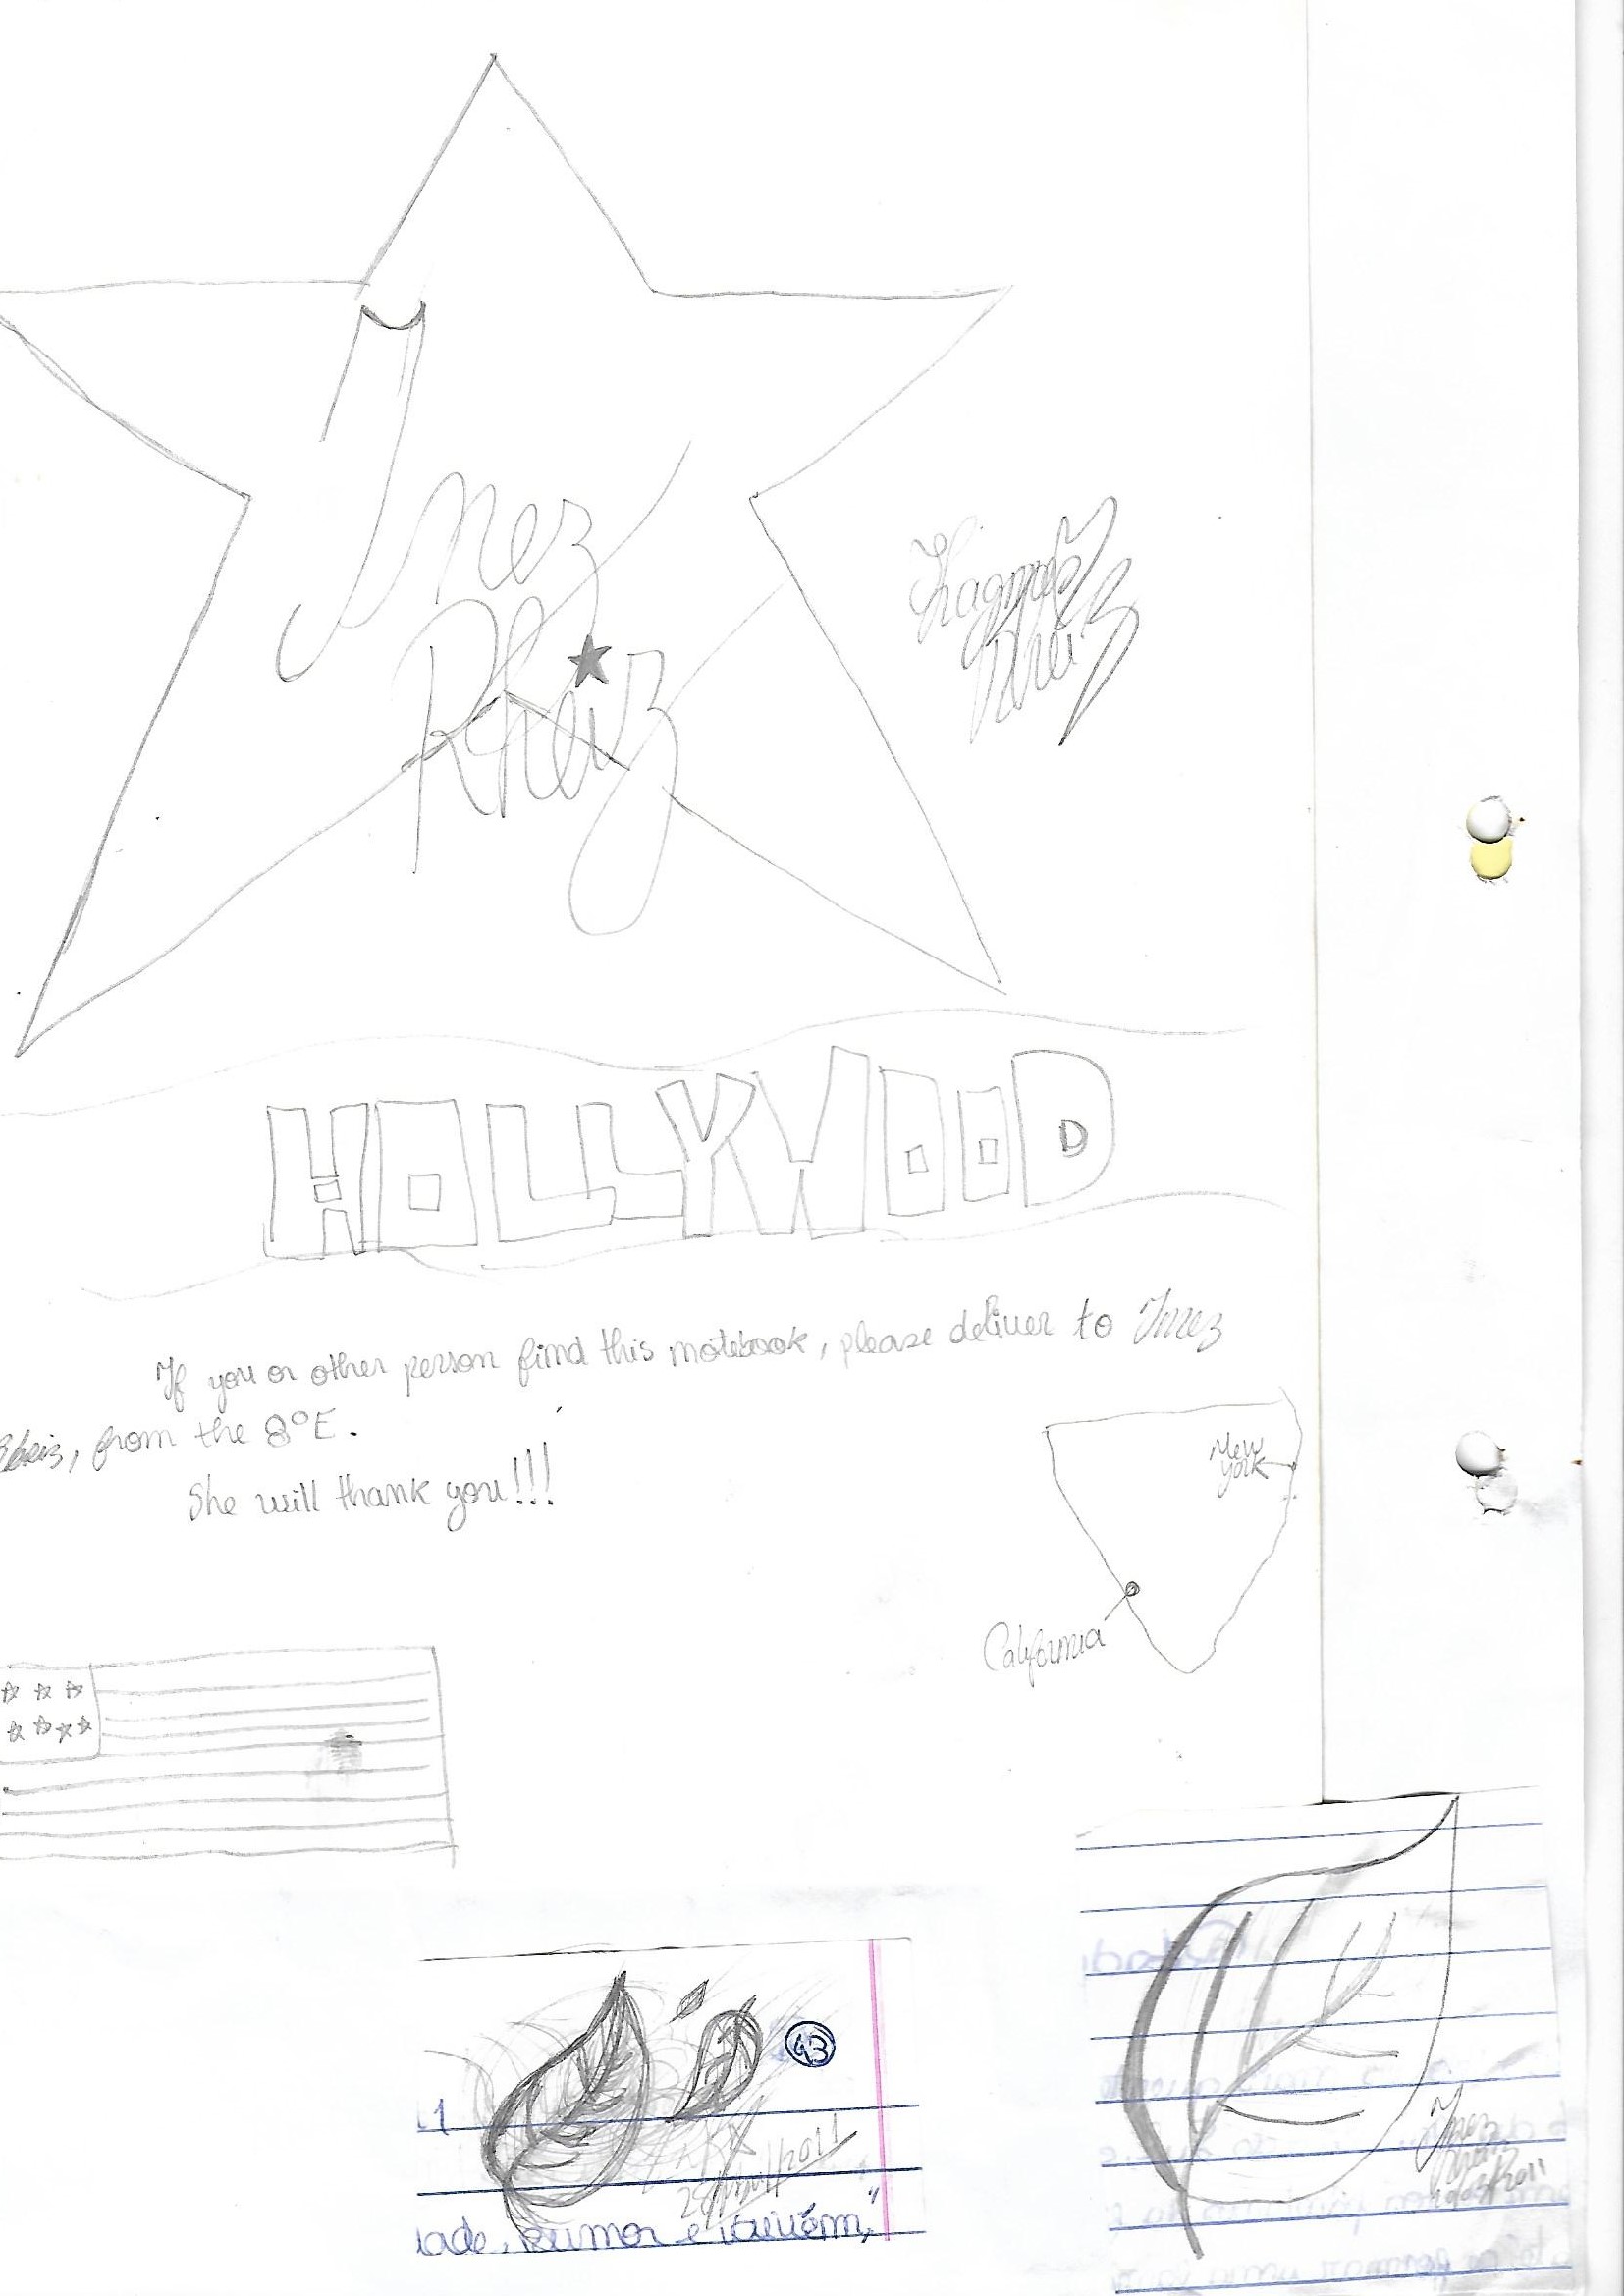 Inez
Rheiz
HOLLYWOOD
If you or other person find this notebook, please deliver to Inez
Rheiz, from the 8ºE.
She will thank you!!!
New
York
California
43
1
lade, humor e
Inez